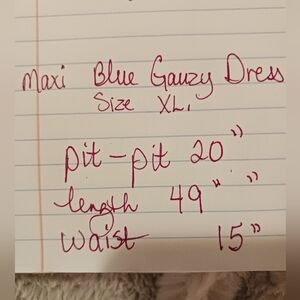 Maxi Blue Gauzy Dress
Size XL,
pit-pit 20"
length 49" "
waist 15"